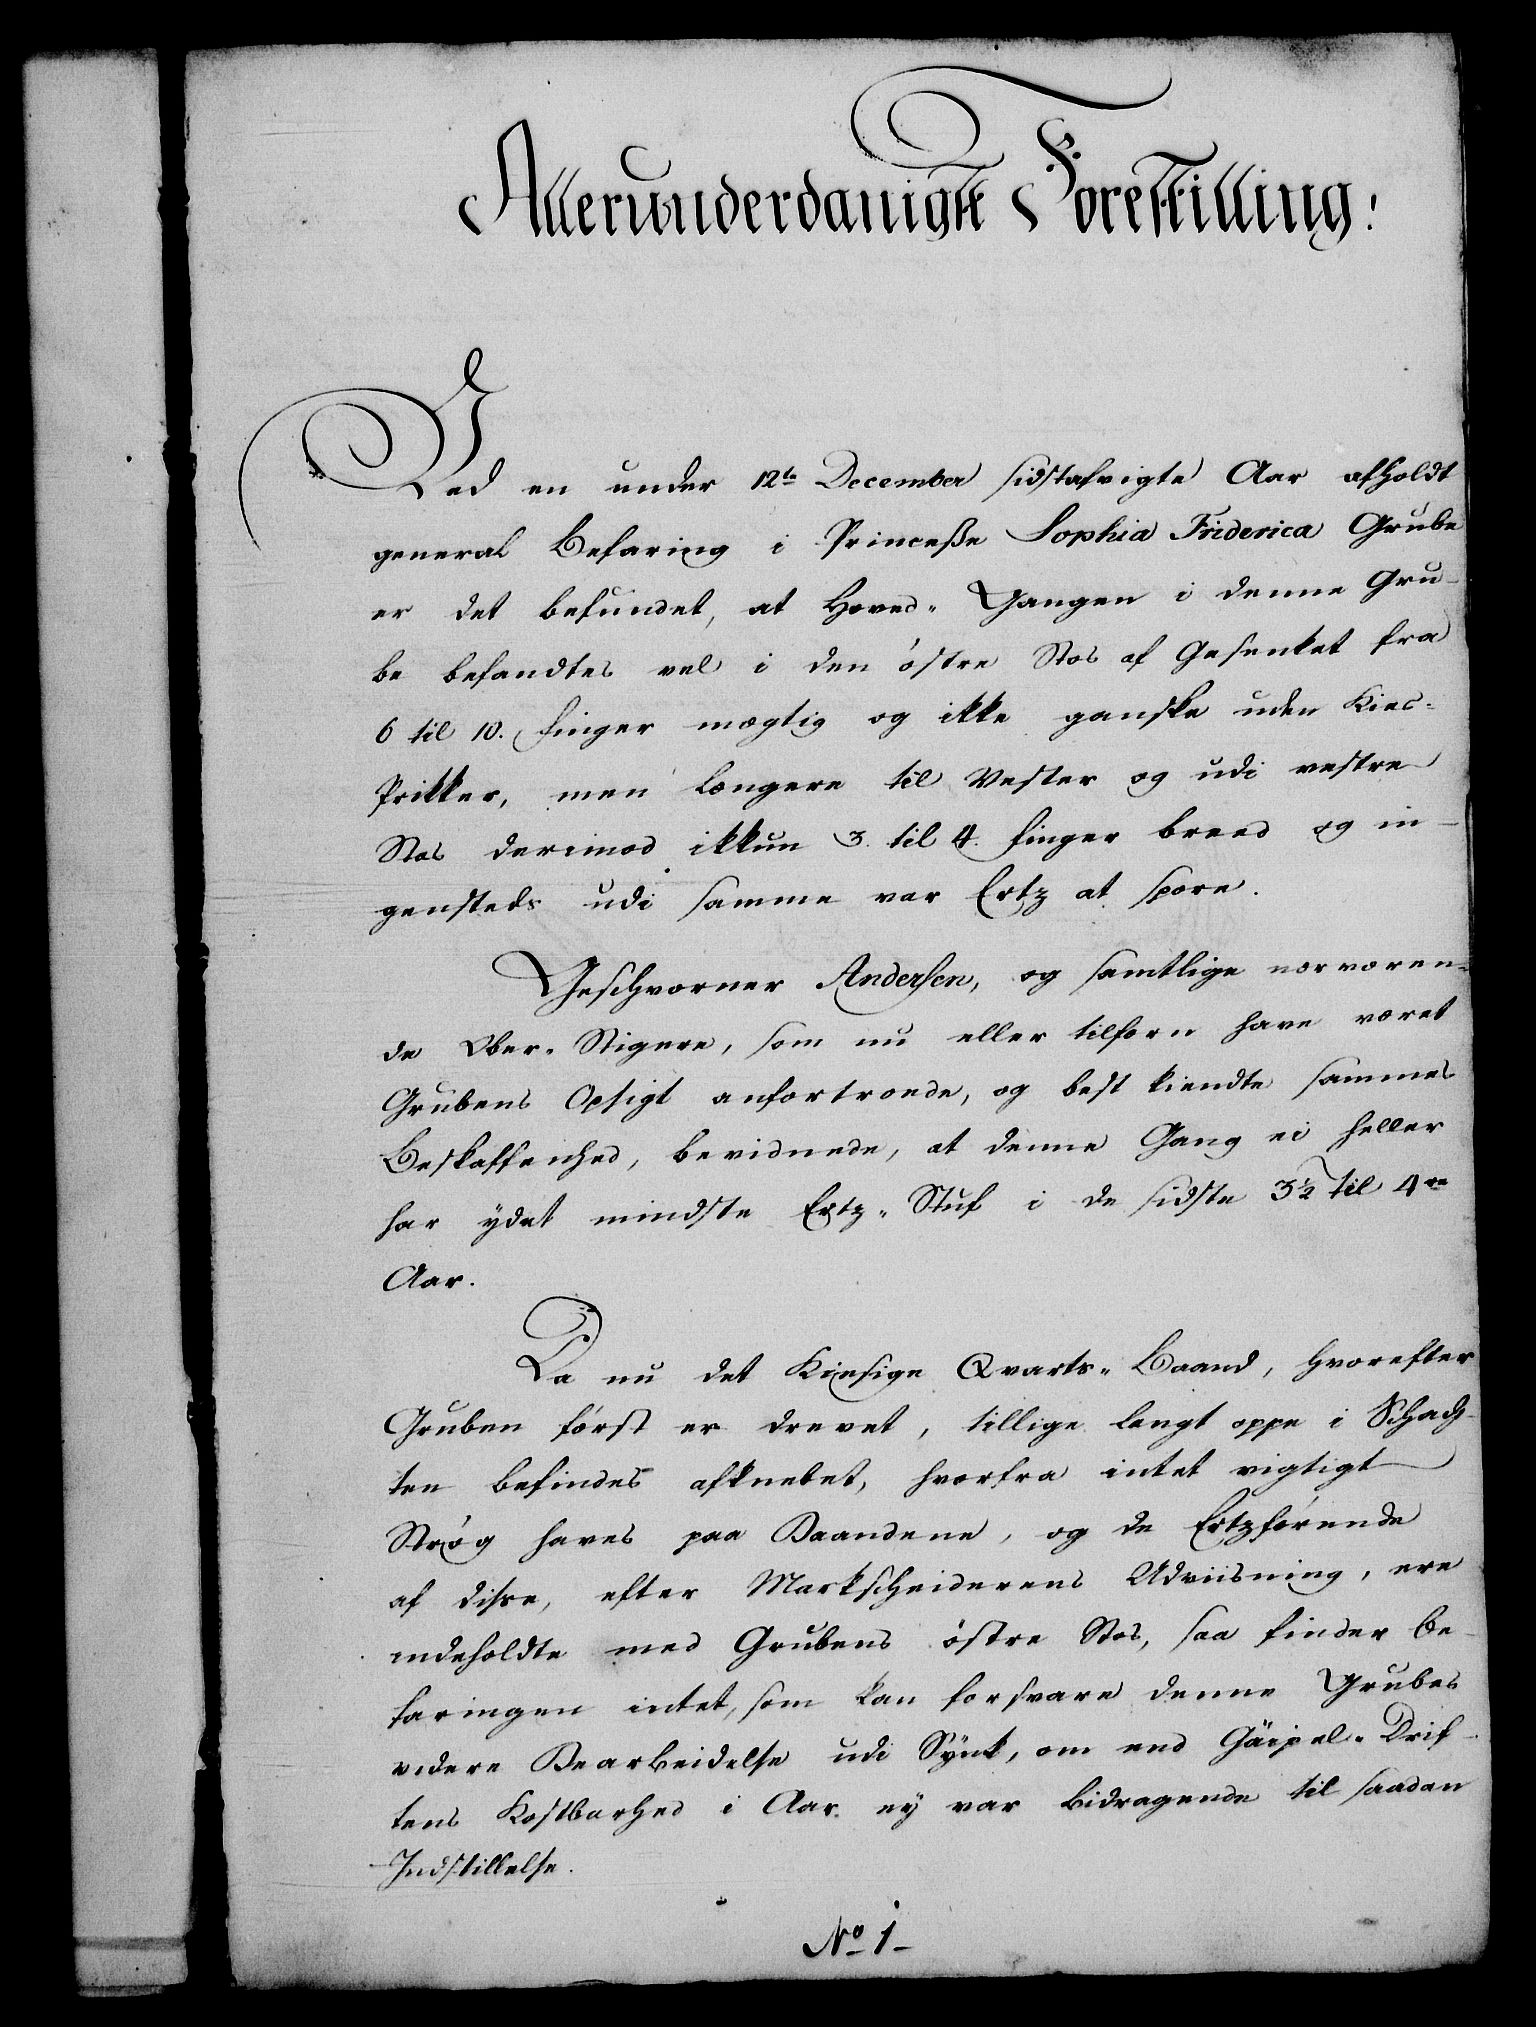 Allerunderdanigst Forestilling!
Ved en under 12te December sidstafvigte Aar afholdt
general Befaring i Princeße Sophia Friderica Grube
er det befundet, at Hoved-Gangen i denne Gru-
be befandtes vel i den östre Stos af Gesenket fra
6 til 10. finger mægtig og ikke ganske uden Kies-
Prikker, men længere til Vester og udi vestre
Stos derimod ikkun 3. til 4. finger breed og in-
gensteds udi samme var Ertz at spore.
Geschvorner Andersen, og samtlige nærværen-
de Ober-Stigere, som nu eller tilforn have været
Grubens Opsigt anfortroede, og best kiendte sammes
Beskaffenhed, bevidnede, at denne Gang ei heller
har ydet mindste Ertz-Stuf i de sidste 3½ til 4re
Aar.
Da nu det Kiesige Qvarts-Baand, hvorefter
Gruben först er drevet, tillige langt oppe i Schach-
ten befindes afknebet, hvorfra intet vigtigt
Strøg haves paa Baandene, og de Ertzförende
af disse, efter Markscheiderens Udviisning, ere
indeholdte med Grubens östre Stos, saa finder Be-
faringen intet, som kan forsvare denne Grubes
videre Bearbeidelse udi Synk, om end Gäipel-Drif-
tens Kostbarhed i Aar ey var bidragende til saadan
Indstillelse.
No 1-